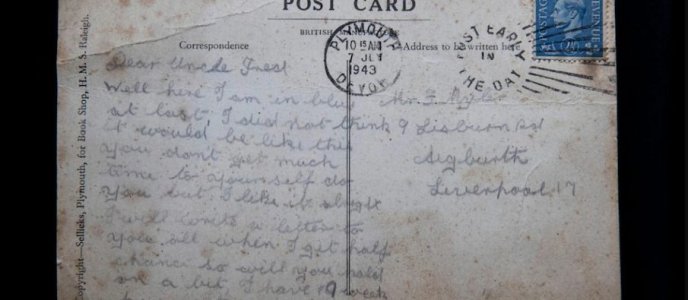 POST CARD
BRITISH MANUFACTURE
Correspondence
Address to be written here
PLYMOUTH
10 15 AM
7 JLY
1943
DEVON
POST EARLY
IN
THE DAY
POSTAGE
REVENUE
Copyright—Sellicks, Plymouth, for Book Shop, H. M. S. Raleigh.
Dear Uncle
Well here I am in blue
at last, I did not think
it would be like this
you don't get much
time to yourself do
you but I like it alright
I will write a letter to
you all when I get half
chance so will you hold
on a bit I have 9 week
Mr F
9 Lisburn Rd
Aigburth
Liverpool 17